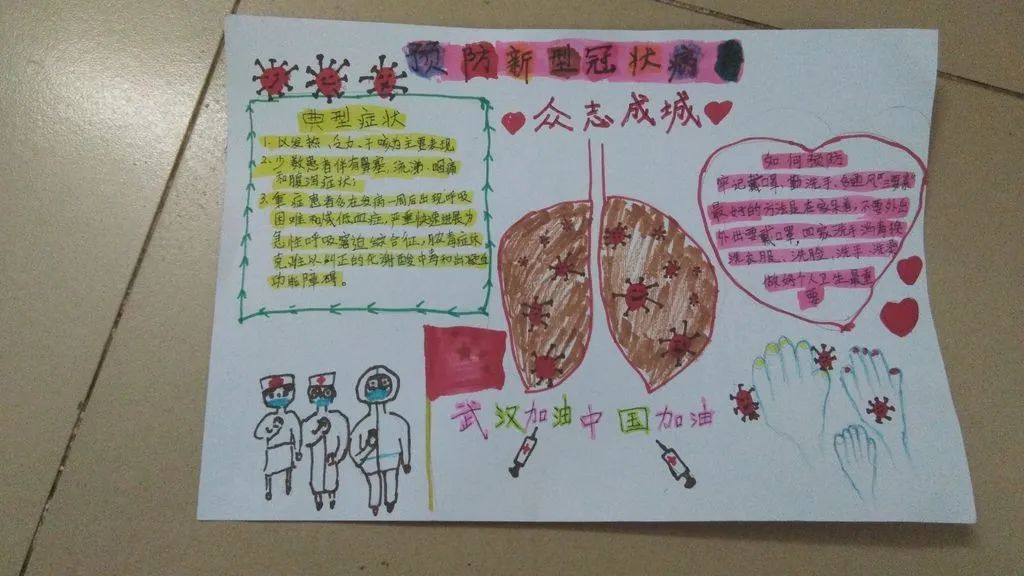 预防新型冠状病毒
众志成城
典型症状
1.以发热、乏力、干咳为主要表现
2.少数患者伴有鼻塞、流涕、咽痛
和腹泻症状;
3.重症患者多在发病一周后出现呼吸
困难和或低血症,严重快速进展为
急性呼吸窘迫综合征,脓毒症休
克难以纠正的代谢酸中毒和出凝血
功能障碍。
如何预防
牢记戴口罩,勤洗手,多通风"三要素"
最好的方法是在家呆着,不要外出
外出要戴口罩,回家洗手消毒换
洗衣服、洗脸、洗手、洗澡
做好个人卫生最重
要
武汉加油中国加油